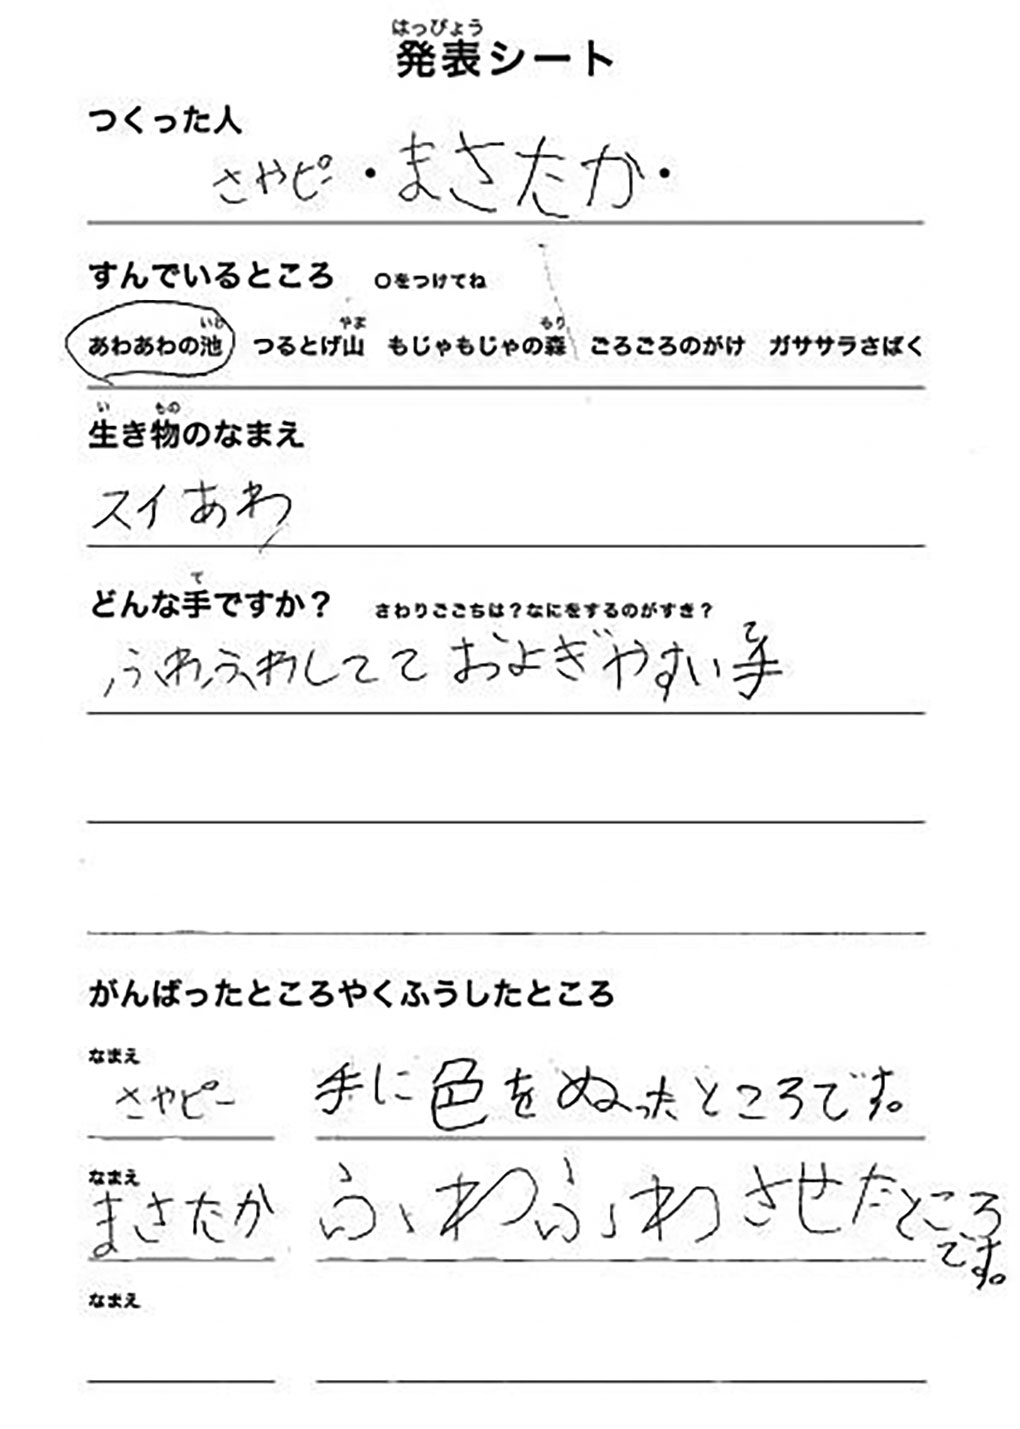 はっぴょう
発表シート
つくった人
さやピー・まさたか・
すんでいるところ ○をつけてね
いけ やま もり
あわあわの池 つるとげ山 もじゃもじゃの森 ごろごろのがけ ガササラさばく
い もの
生き物のなまえ
スイあわ
て
どんな手ですか？ さわりごこちは？なにをするのがすき？
て
ふわふわしてて およぎやすい手
がんばったところやくふうしたところ
なまえ
さやピー 手に色をぬったところです。
なまえ
まさたか ふわふわさせたところ
です。
なまえ